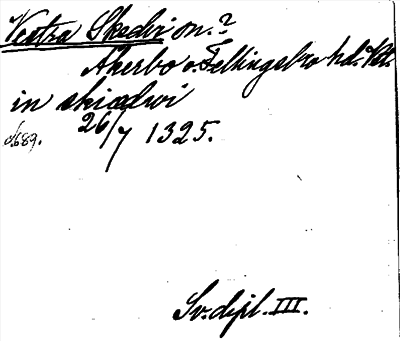 Vestra Skedvi sn.?
Åkerbo o. Fellingsbro hd. Vstm.
in skiædwi
26/7 1325.
Sv. dipl. III.